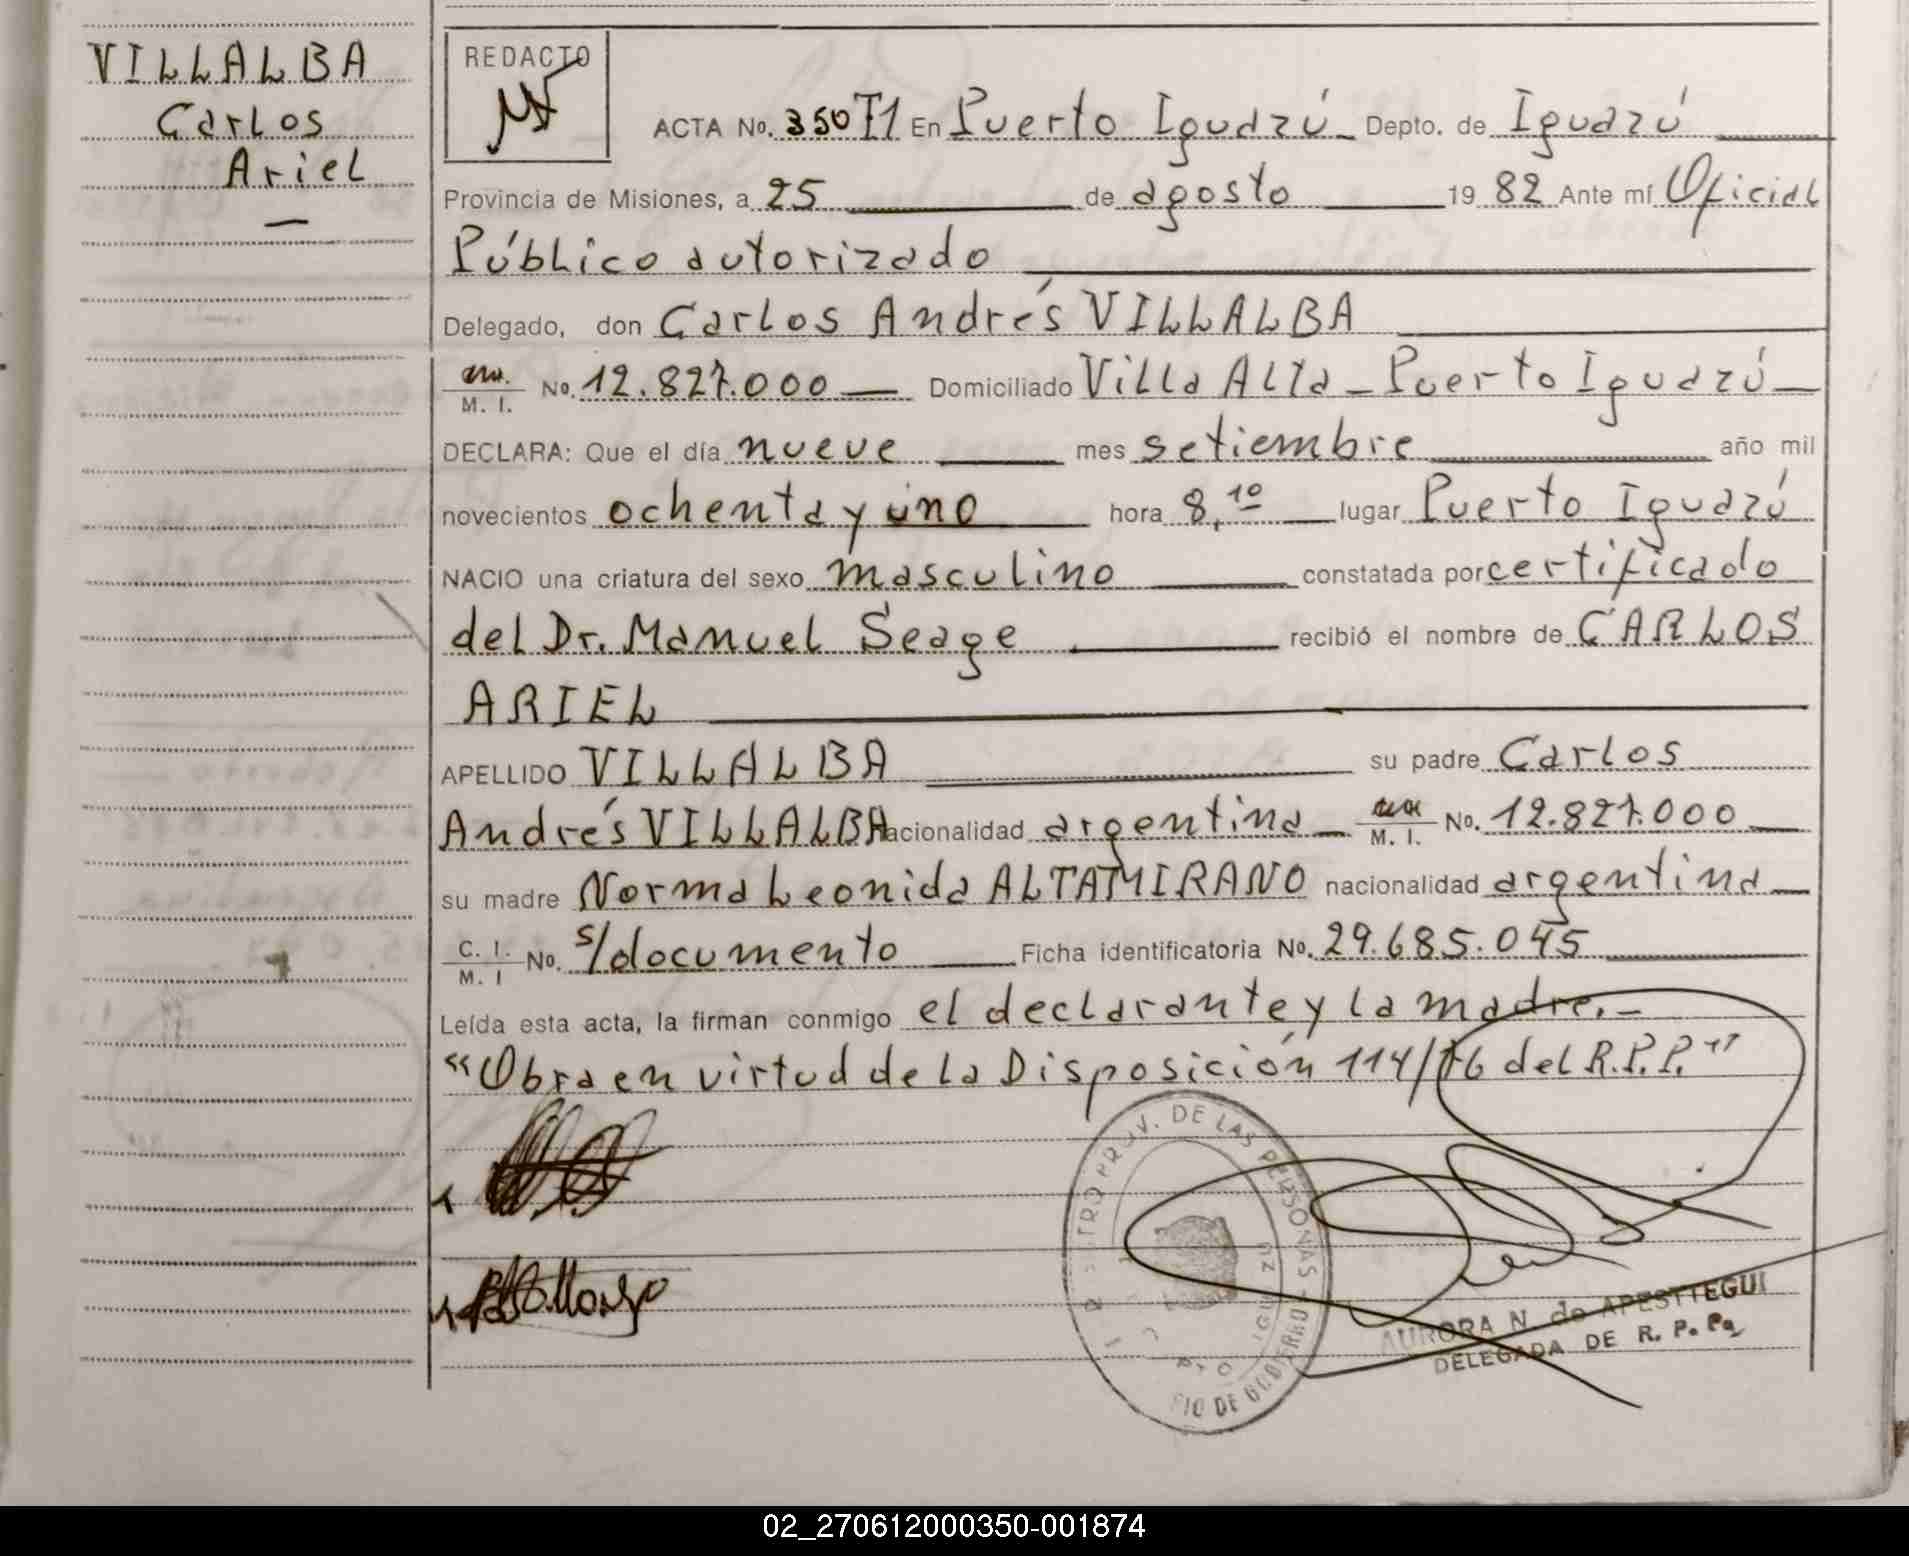 VILLALBA
Carlos
Ariel
REDACTO
ACTA No. 350 T1 En Puerto Iguazú Depto. de Iguazú
Provincia de Misiones, a 25 de agosto 1982 Ante mí Oficial
Público autorizado
Delegado, don Carlos Andrés VILLALBA
M. I. No. 12.827.000 Domiciliado Villa Alta - Puerto Iguazú
DECLARA: Que el día nueve mes setiembre año mil
novecientos ochenta y uno hora 8,10 lugar Puerto Iguazú
NACIO una criatura del sexo masculino constatada por certificado
del Dr. Manuel Seage recibió el nombre de CARLOS
ARIEL
APELLIDO VILLALBA su padre Carlos
Andrés VILLALBA nacionalidad argentina M. I. No. 12.827.000
su madre Norma Leonida ALTAMIRANO nacionalidad argentina
C. I. M. I No. s/documento Ficha identificatoria No. 29.685.045
Leída esta acta, la firman conmigo el declarante y la madre.-
"Obra en virtud de la Disposición 114/76 del R.P.P."
PROV. DE LAS PERSONAS
DE GOBIERNO
AURORA N. de APESTTEGUI
DELEGADA DE R. P. P.
02_270612000350-001874